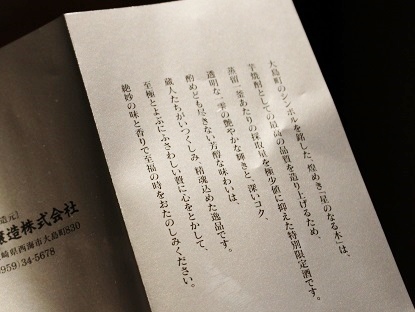 大島町のシンボルを銘した、煌めき「星のなる木」は、
芋焼酎としての最高の品質を造り上げるため、
蒸留一釜あたりの採取量を極少値に抑えた特別限定酒です。
透明な一雫の艶やかな輝きと、深いコク、
酌めども尽きない芳醇な味わいは、
蔵人たちがいつくしみ、精魂込めた逸品です。
至極とよぶにふさわしい贅に心をとかして、
絶妙の味と香りで至福の時をおたのしみください。
造元]
醸造株式会社
崎県西海市大島町830
0959)34-5678